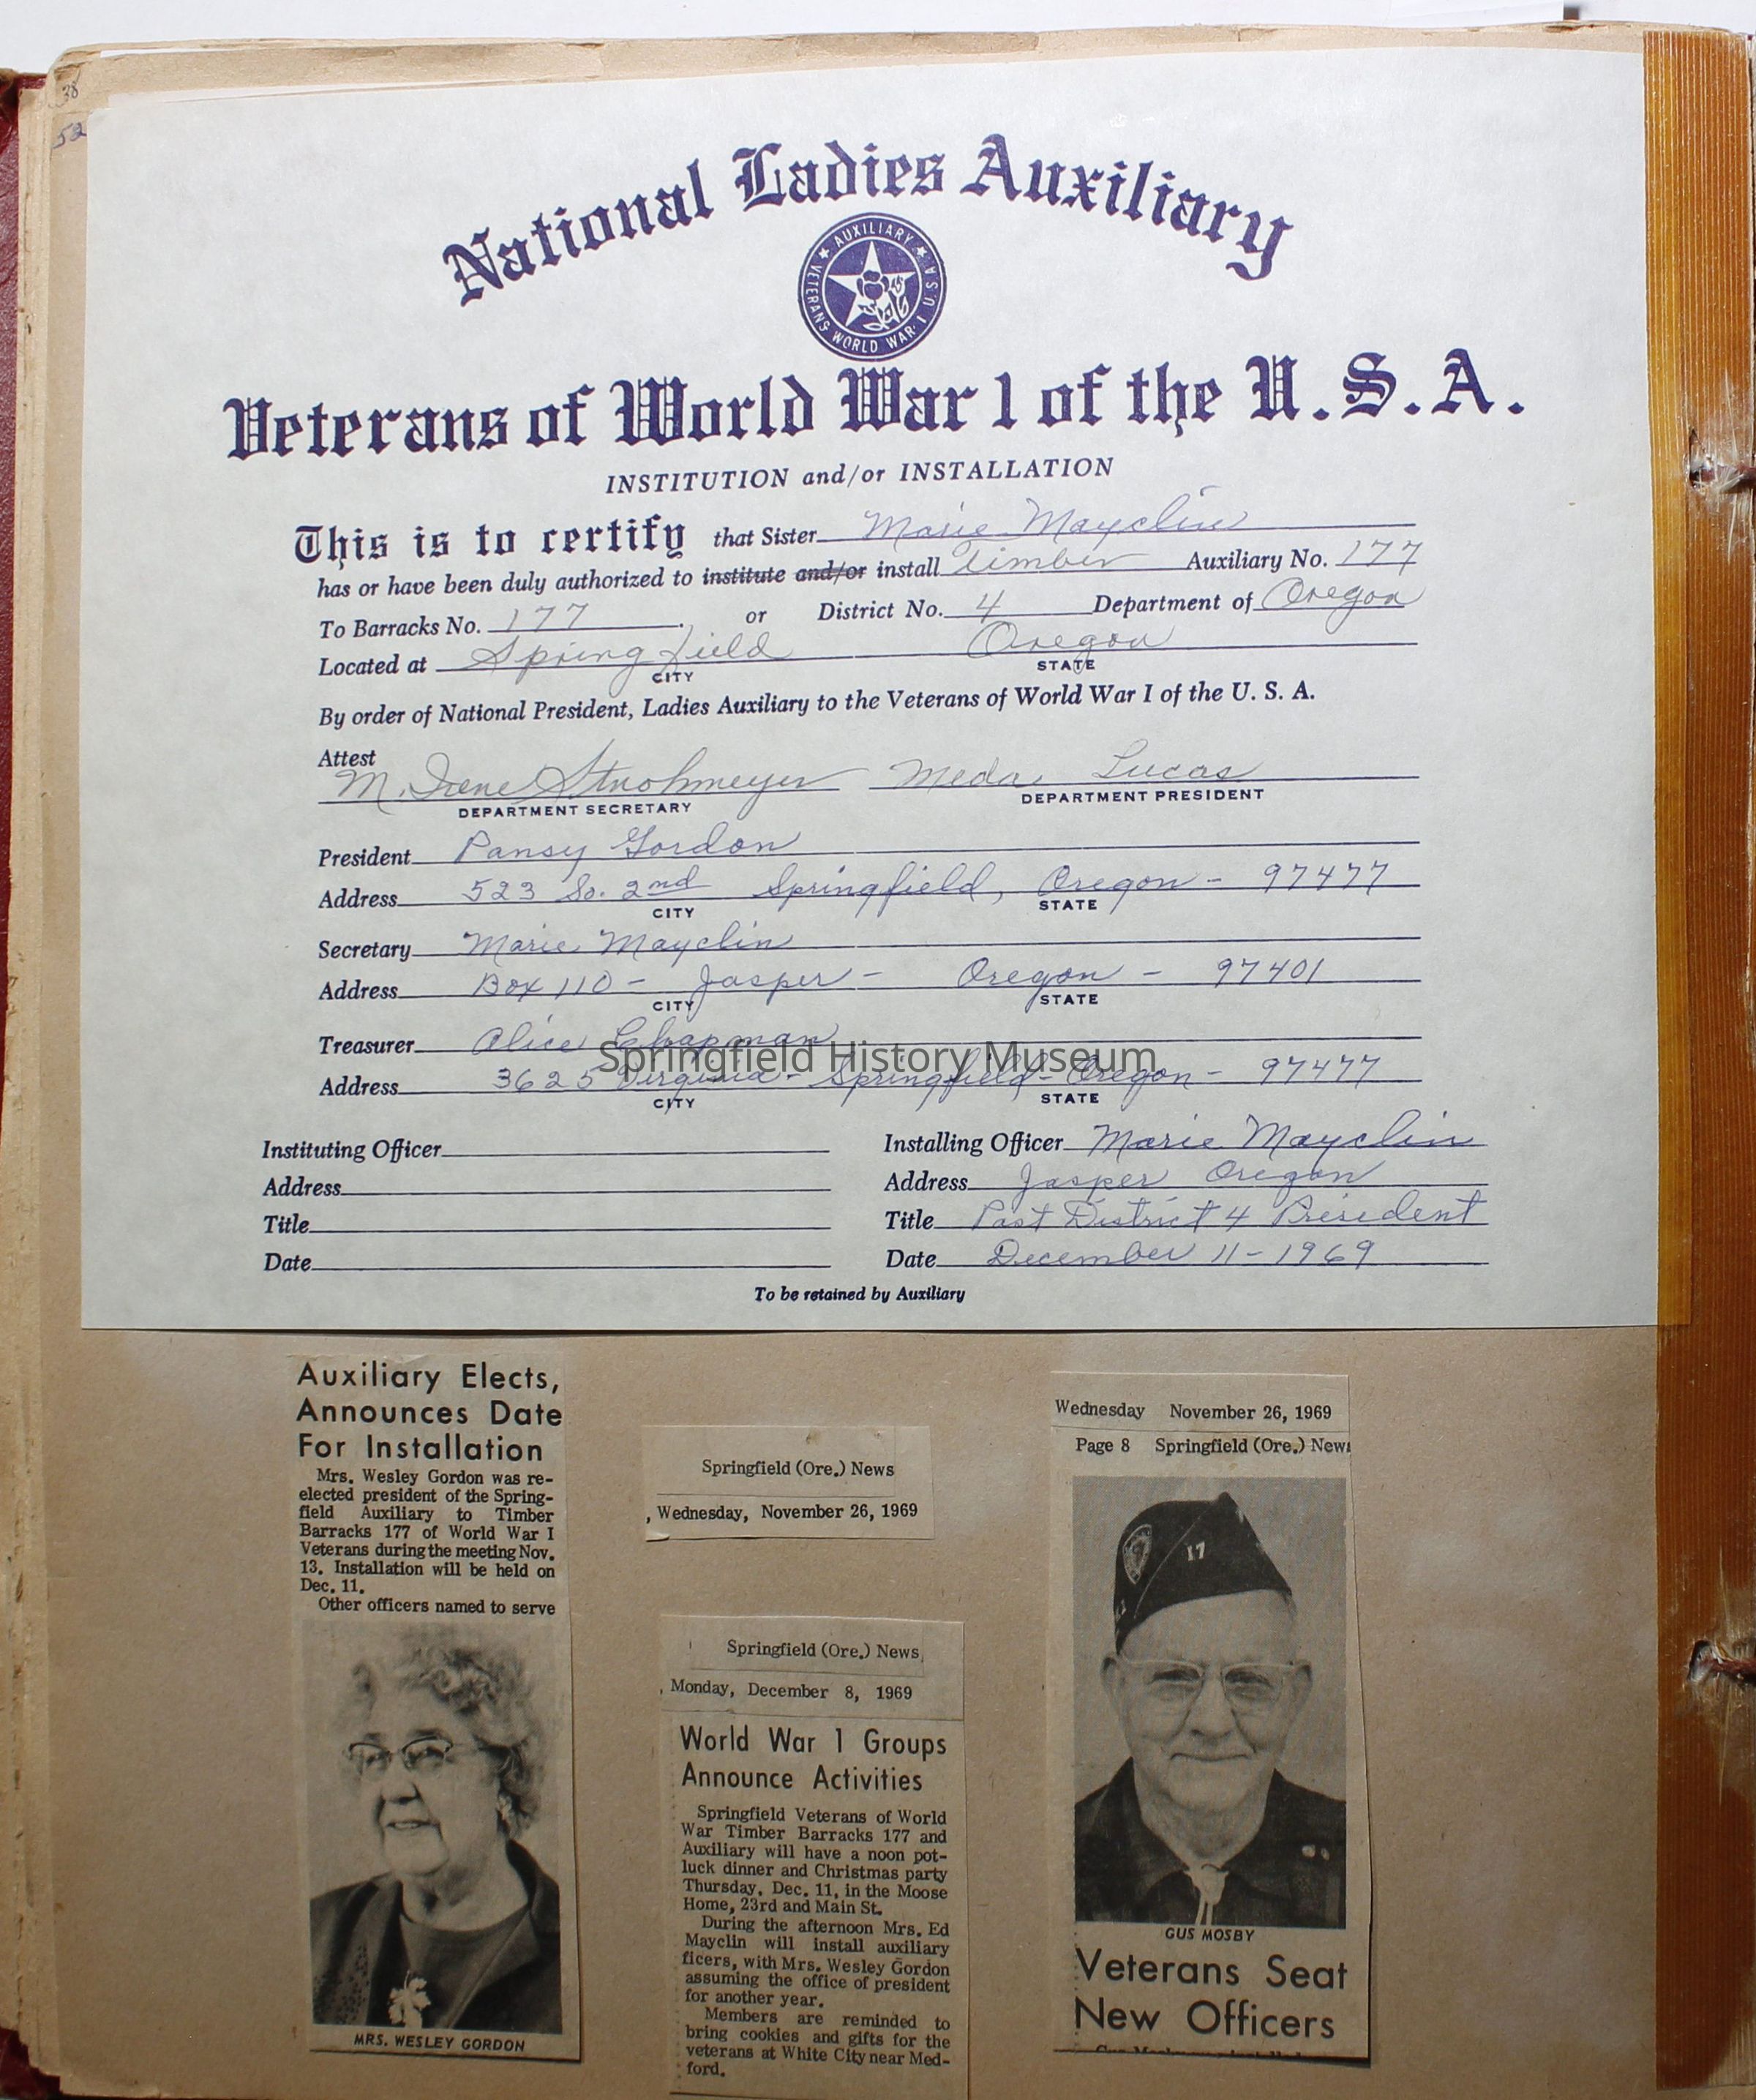 38
52
National Ladies Auxiliary
★ AUXILIARY ★ VETERANS WORLD WAR I U.S.A.
Veterans of World War 1 of the U.S.A.
INSTITUTION and/or INSTALLATION
This is to certify that Sister Marie Mayclin
has or have been duly authorized to institute and/or install Timber Auxiliary No. 177
To Barracks No. 177 or District No. 4 Department of Oregon
Located at Springfield Oregon
CITY STATE
By order of National President, Ladies Auxiliary to the Veterans of World War I of the U. S. A.
Attest
M. Irene Strohmeyer Meda Lucas
DEPARTMENT SECRETARY DEPARTMENT PRESIDENT
President Pansy Gordon
Address 523 So. 2nd Springfield, Oregon - 97477
CITY STATE
Secretary Marie Mayclin
Address Box 110 - Jasper - Oregon - 97401
CITY STATE
Treasurer Alice Chapman
Springfield History Museum
Address 3625 Virginia - Springfield - Oregon - 97477
CITY STATE
Instituting Officer
Address
Title
Date
Installing Officer Marie Mayclin
Address Jasper Oregon
Title Past District 4 President
Date December 11 - 1969
To be retained by Auxiliary
Auxiliary Elects,
Announces Date
For Installation
Mrs. Wesley Gordon was re-
elected president of the Spring-
field Auxiliary to Timber
Barracks 177 of World War I
Veterans during the meeting Nov.
13. Installation will be held on
Dec. 11.
Other officers named to serve
MRS. WESLEY GORDON
Springfield (Ore.) News
, Wednesday, November 26, 1969
Springfield (Ore.) News
Monday, December 8, 1969
World War 1 Groups
Announce Activities
Springfield Veterans of World
War Timber Barracks 177 and
Auxiliary will have a noon pot-
luck dinner and Christmas party
Thursday, Dec. 11, in the Moose
Home, 23rd and Main St.
During the afternoon Mrs. Ed
Mayclin will install auxiliary
ficers, with Mrs. Wesley Gordon
assuming the office of president
for another year.
Members are reminded to
bring cookies and gifts for the
veterans at White City near Med-
ford.
Wednesday November 26, 1969
Page 8 Springfield (Ore.) News
17
GUS MOSBY
Veterans Seat
New Officers